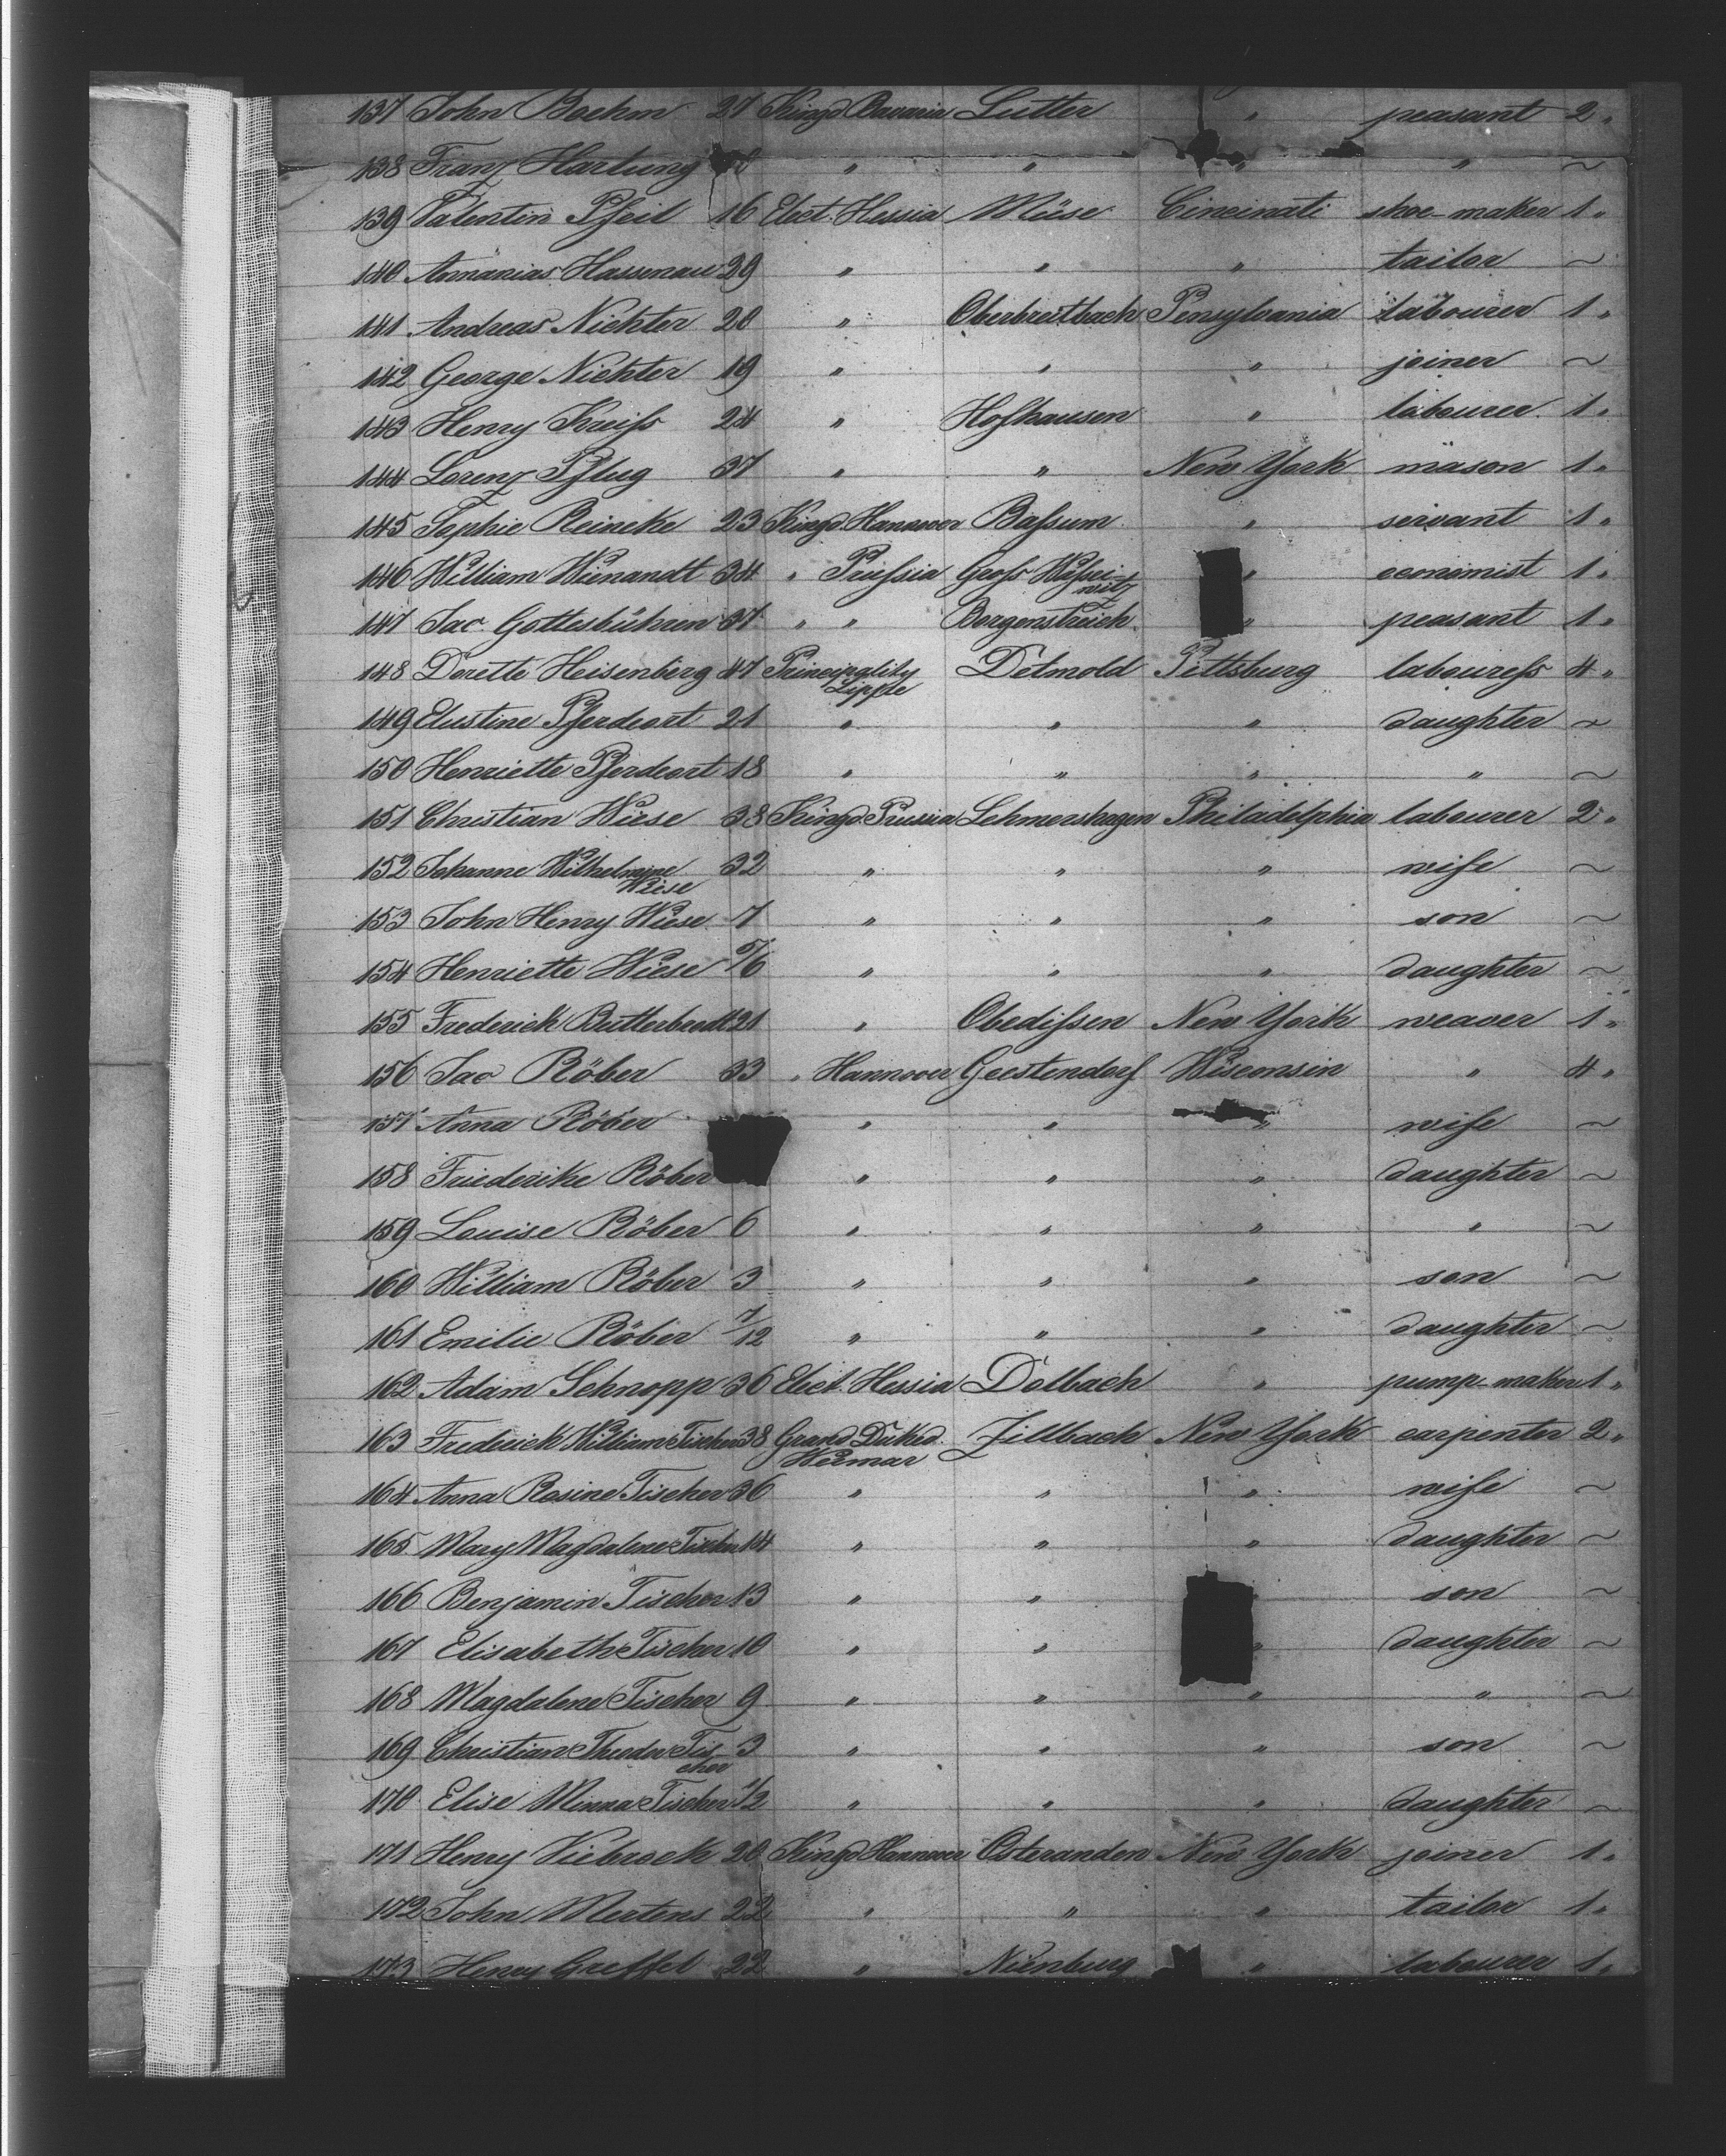 137 John Boehm 27 Kingd Bavaria Lutter " peasant 2 "
138 Franz Hartung " " " " ~
139 Valentin Pfeil 16 Elect. Hessia Müse Cincinati shoe-maker 1 "
140 Annanias Hassenau 29 " " " tailor ~
141 Andreas Nichter 20 " Oberbreitbach Pensylvania labourer 1 "
142 George Nichter 19 " " " joiner ~
143 Henry Kreiſs 24 " Hofhausen " labourer 1 "
144 Lorenz Pflug 37 " " New York mason 1 "
145 Sophie Reineke 23 Kingd. Hannover Baſsum " servant 1 "
146 William Wienandt 34 " Pruſsia Groſs " economist 1 "
147 Jac. Gottesbühren 37 " " Borgenstreich " peasant 1 "
148 Dorette Heisenberg 47 Principality Lippe Detmold Pittsburg laboureſs 4 "
149 Pferdeort 21 " " " daughter ~
150 Henriette Pferdeort 18 " " " " ~
151 Christian Wiese 38 Kingd Prussia Lehmershagen Philadelphia labourer 2 "
152 Johanne Wilhelmine Wiese 32 " " " wife ~
153 John Henry Wiese 7 " " " son ~
154 Henriette Wiese 5/6 " " " daughter ~
155 Frederick 21 " Obediſsen New York weaver 1 "
156 Jac Röber 33 " Hannover Geestendorf Wisconsin " 4 "
157 Anna Röber " " " wife ~
158 Friederike Röber " " " daughter ~
159 Louise Röber 6 " " " " ~
160 William Röber 3 " " " son ~
161 Emilie Röber 7/12 " " " daughter ~
162 Adam Schnopp 36 Elect. Hessia Dolbach " pump-maker 1 "
163 Frederick William Tischer 38 Grand Duked. Weimar Zillbach New York carpenter 2 "
164 Anna Rosine Tischer 36 " " " wife ~
165 Mary Magdalene Tischer 14 " " " daughter ~
166 Benjamin Tischer 13 " " " son ~
167 Elisabeth Tischer 10 " " " daughter ~
168 Magdalene Tischer 9 " " " " ~
169 Christian Theodor Tischer 3 " " " son ~
170 Elise Minna Tischer 1/2 " " " daughter ~
171 Henry Viebrock 20 Kingd Hannover Osteranden New York joiner 1 "
172 John Mertens 22 " " " tailor 1 "
173 Henry Greffel 22 " Nienburg " labourer 1 "